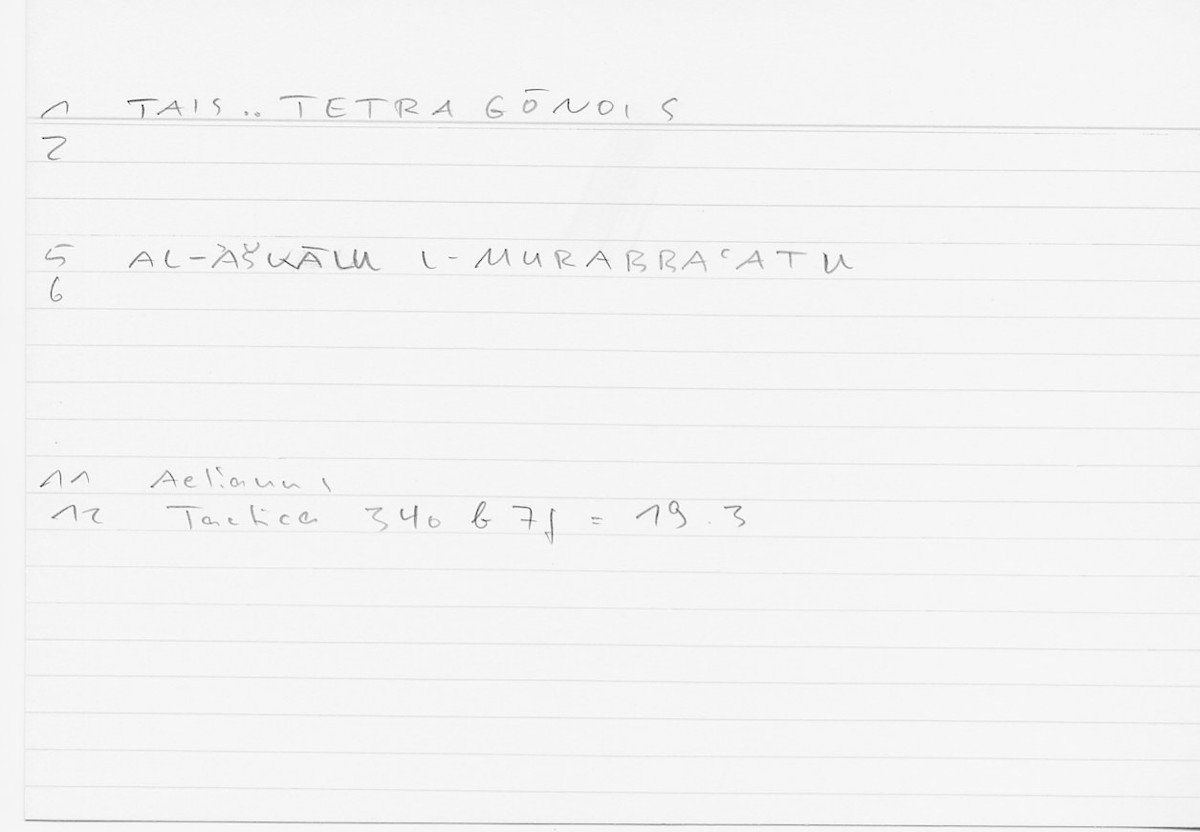 1 TAIS .. TETRAGŌNOIS
2
5 AL-AŠKĀLU L-MURABBAʿATU
6
11 Aelianus
12 Tactica 340 b 7f = 19.3